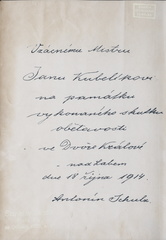 Vzácnému Mistru
Janu Kubelíkovi
na památku
vykonaného skutku
obětavosti
ve Dvoře Králové
nad Labem
dne 18 října 1914.
Antonín Schulz